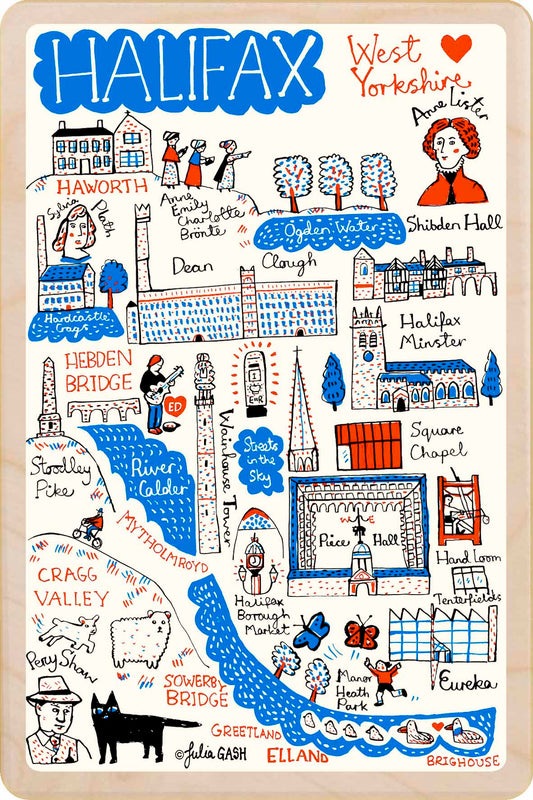 HALIFAX
West
Yorkshire
Anne Lister
HAWORTH
Anne
Emily
Charlotte
Brontë
Ogden Water
Shibden Hall
Sylvia Plath
Dean Clough
Hardcastle
Crags
Halifax
Minster
HEBDEN
BRIDGE
ED
E R
Wainhouse Tower
Streets
in the
Sky
Square
Chapel
Stoodley
Pike
River
Calder
MYTHOLMROYD
W E
Piece Hall
Hand Loom
Tenterfields
CRAGG
VALLEY
Halifax
Borough
Market
Percy Shaw
SOWERBY
BRIDGE
Manor
Heath
Park
Eureka
GREETLAND
ELLAND
BRIGHOUSE
©Julia GASH